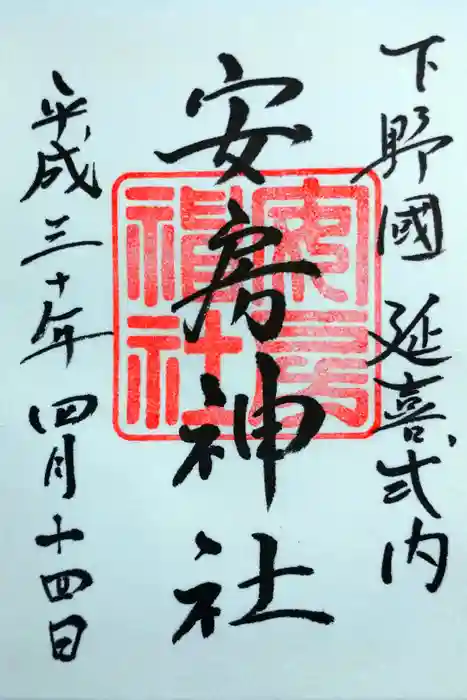 下野國 延喜式内
安房神社
平成三十年 四月十四日
安房神社